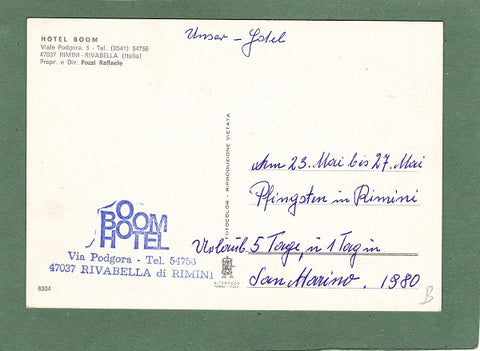 HOTEL BOOM
Viale Podgora, 5 - Tel. (0541) 54756
47037 RIMINI - RIVABELLA (Italia)
Propr. e Dir. Pozzi Raffaele
Unser - Hotel
FOTOCOLOR - RIPRODUZIONE VIETATA
vom 23. Mai bis 27. Mai
Pfingsten in Rimini
Urlaub 5 Tage, u 1 Tag in
San Marino. 1980
BOOM
HOTEL
Via Podgora - Tel. 54756
47037 RIVABELLA di RIMINI
8304
B